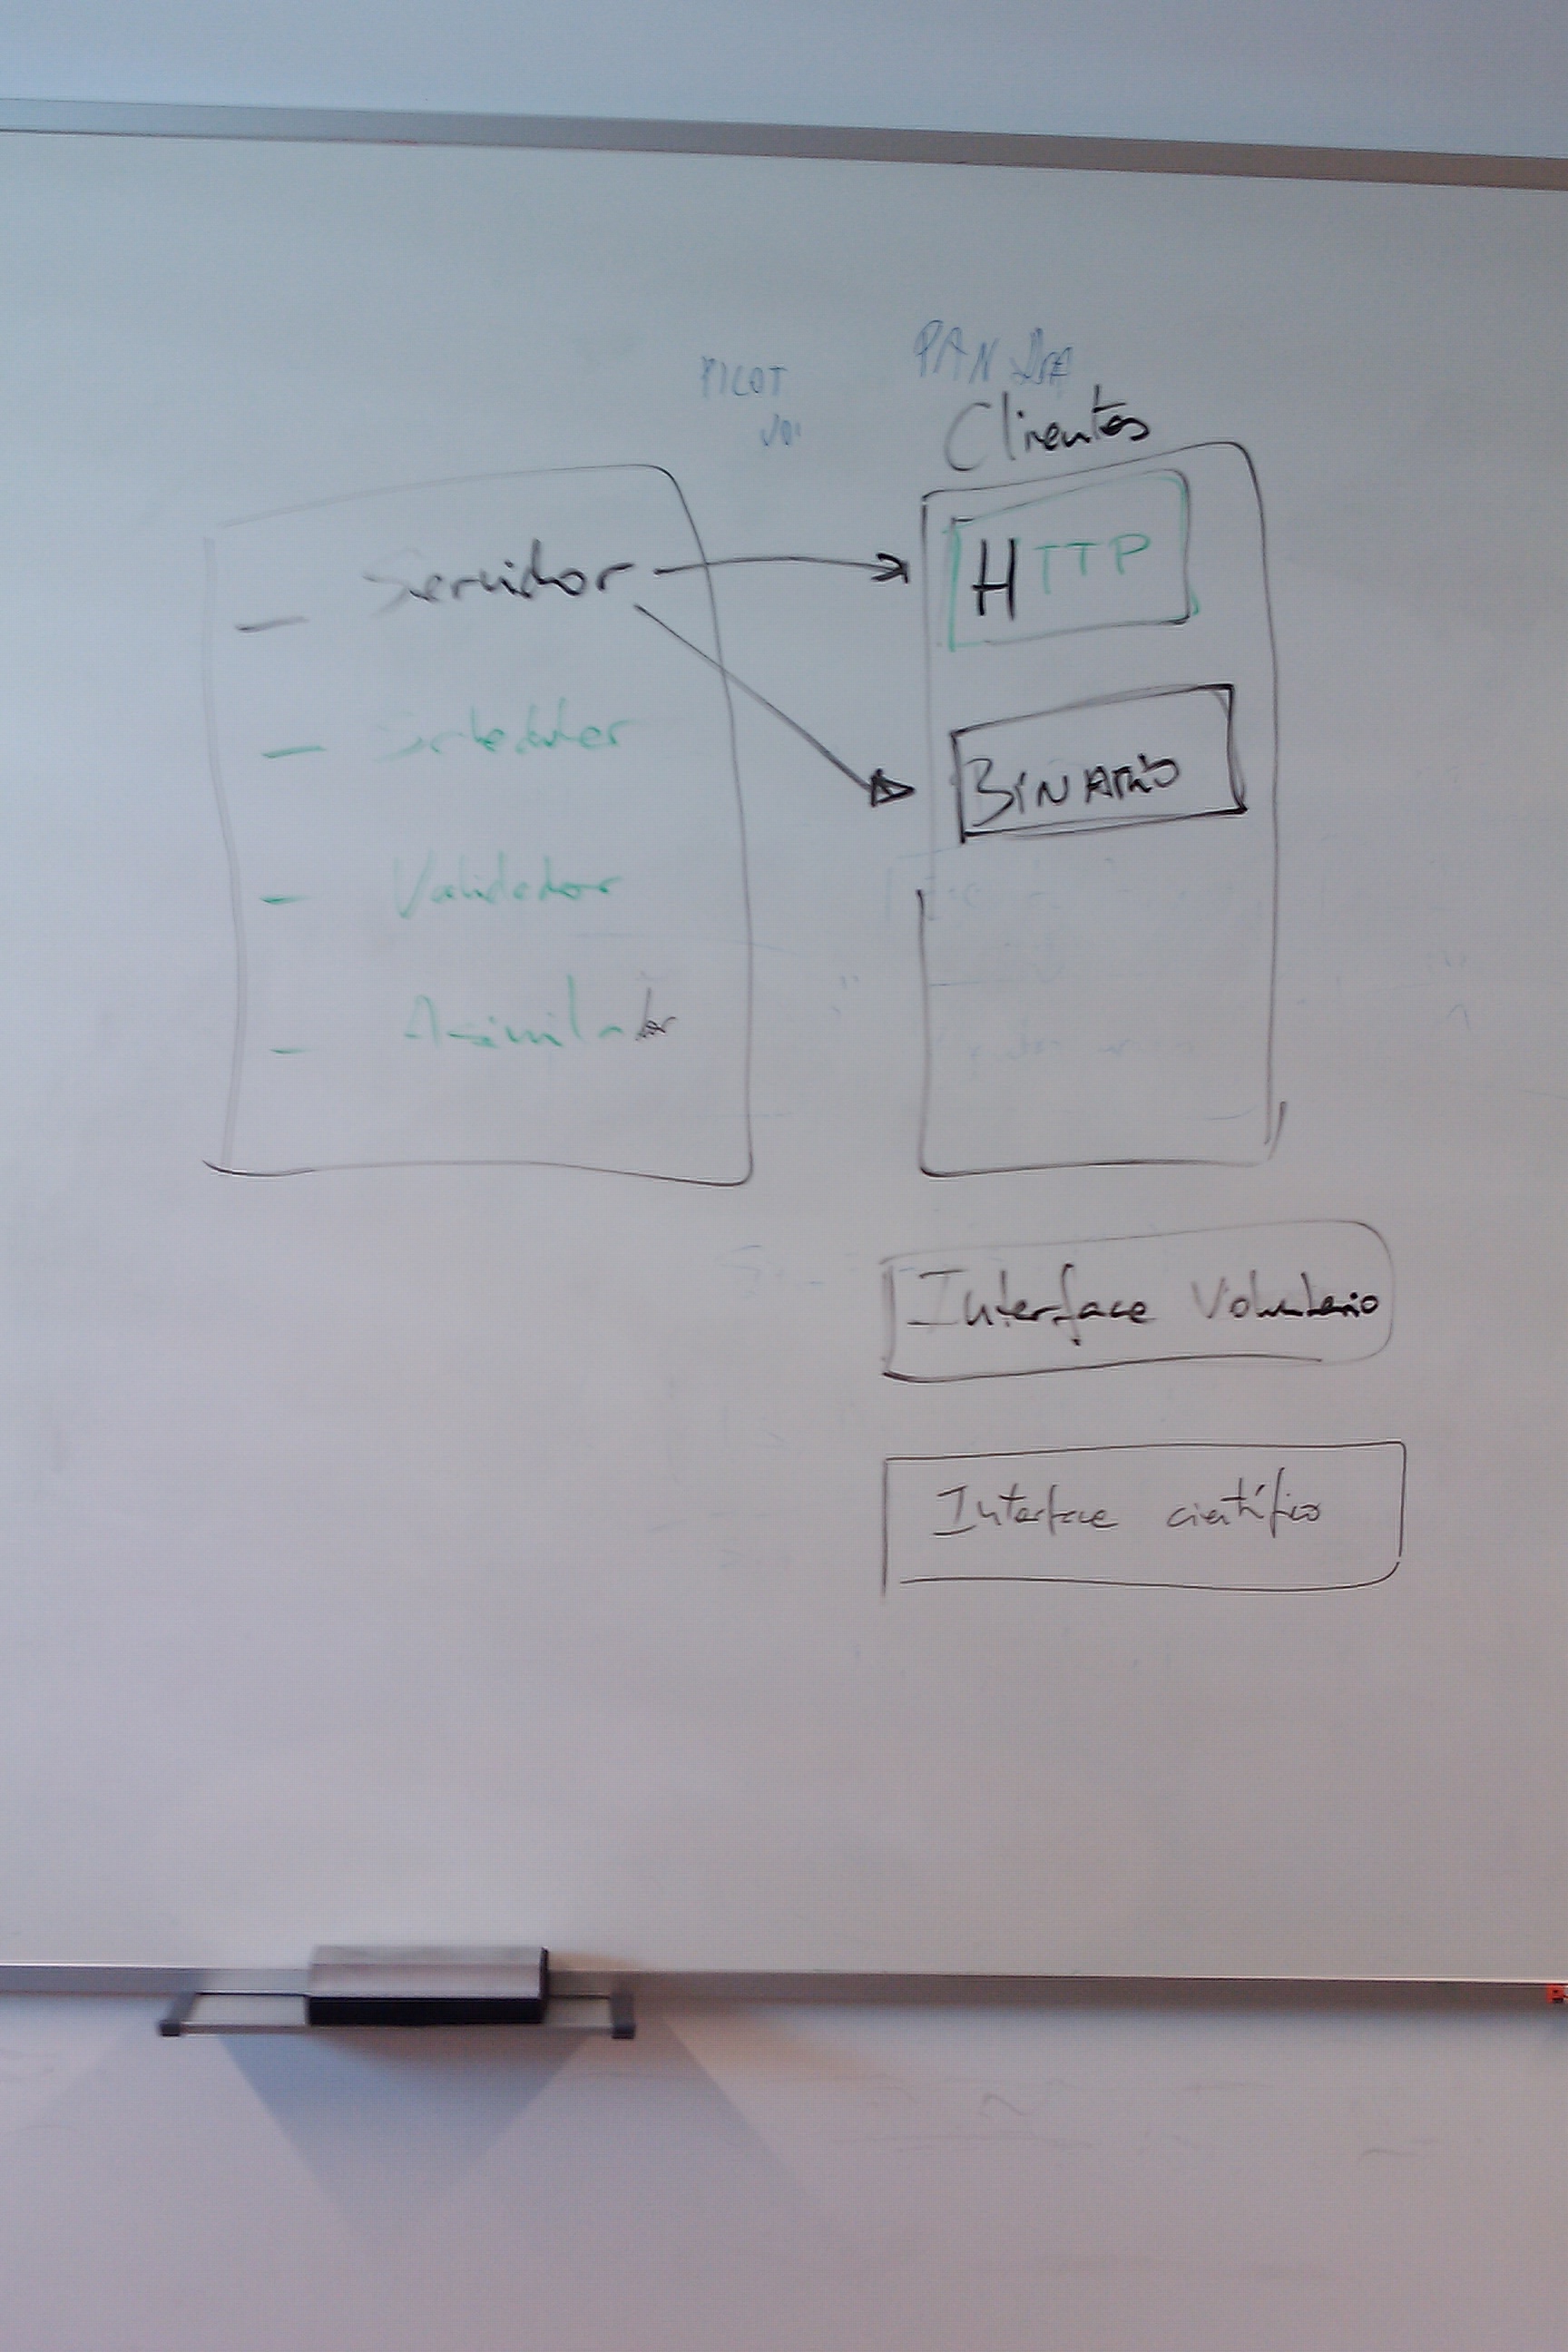 PILOT
PANDA
Clientes
— Servidor
— Scheduler
— Validador
— Asimilador
HTTP
BINARIO
Interface Voluntario
Interface científico